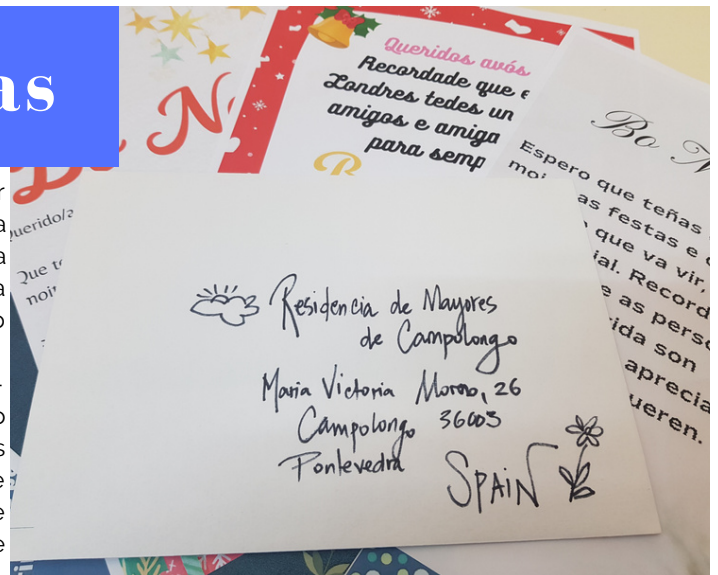 as
Bo N
Querido/a
Queridos avós
Recordade que e
Londres tedes un
amigos e amiga
para semp
Bo N
Espero que teñas
as festas e
que va vir,
ial. Record
e as perso
ida son
aprecia
ueren.
Residencia de Mayores
de Campolongo
Maria Victoria Moreno, 26
Campolongo 36003
Pontevedra
SPAIN